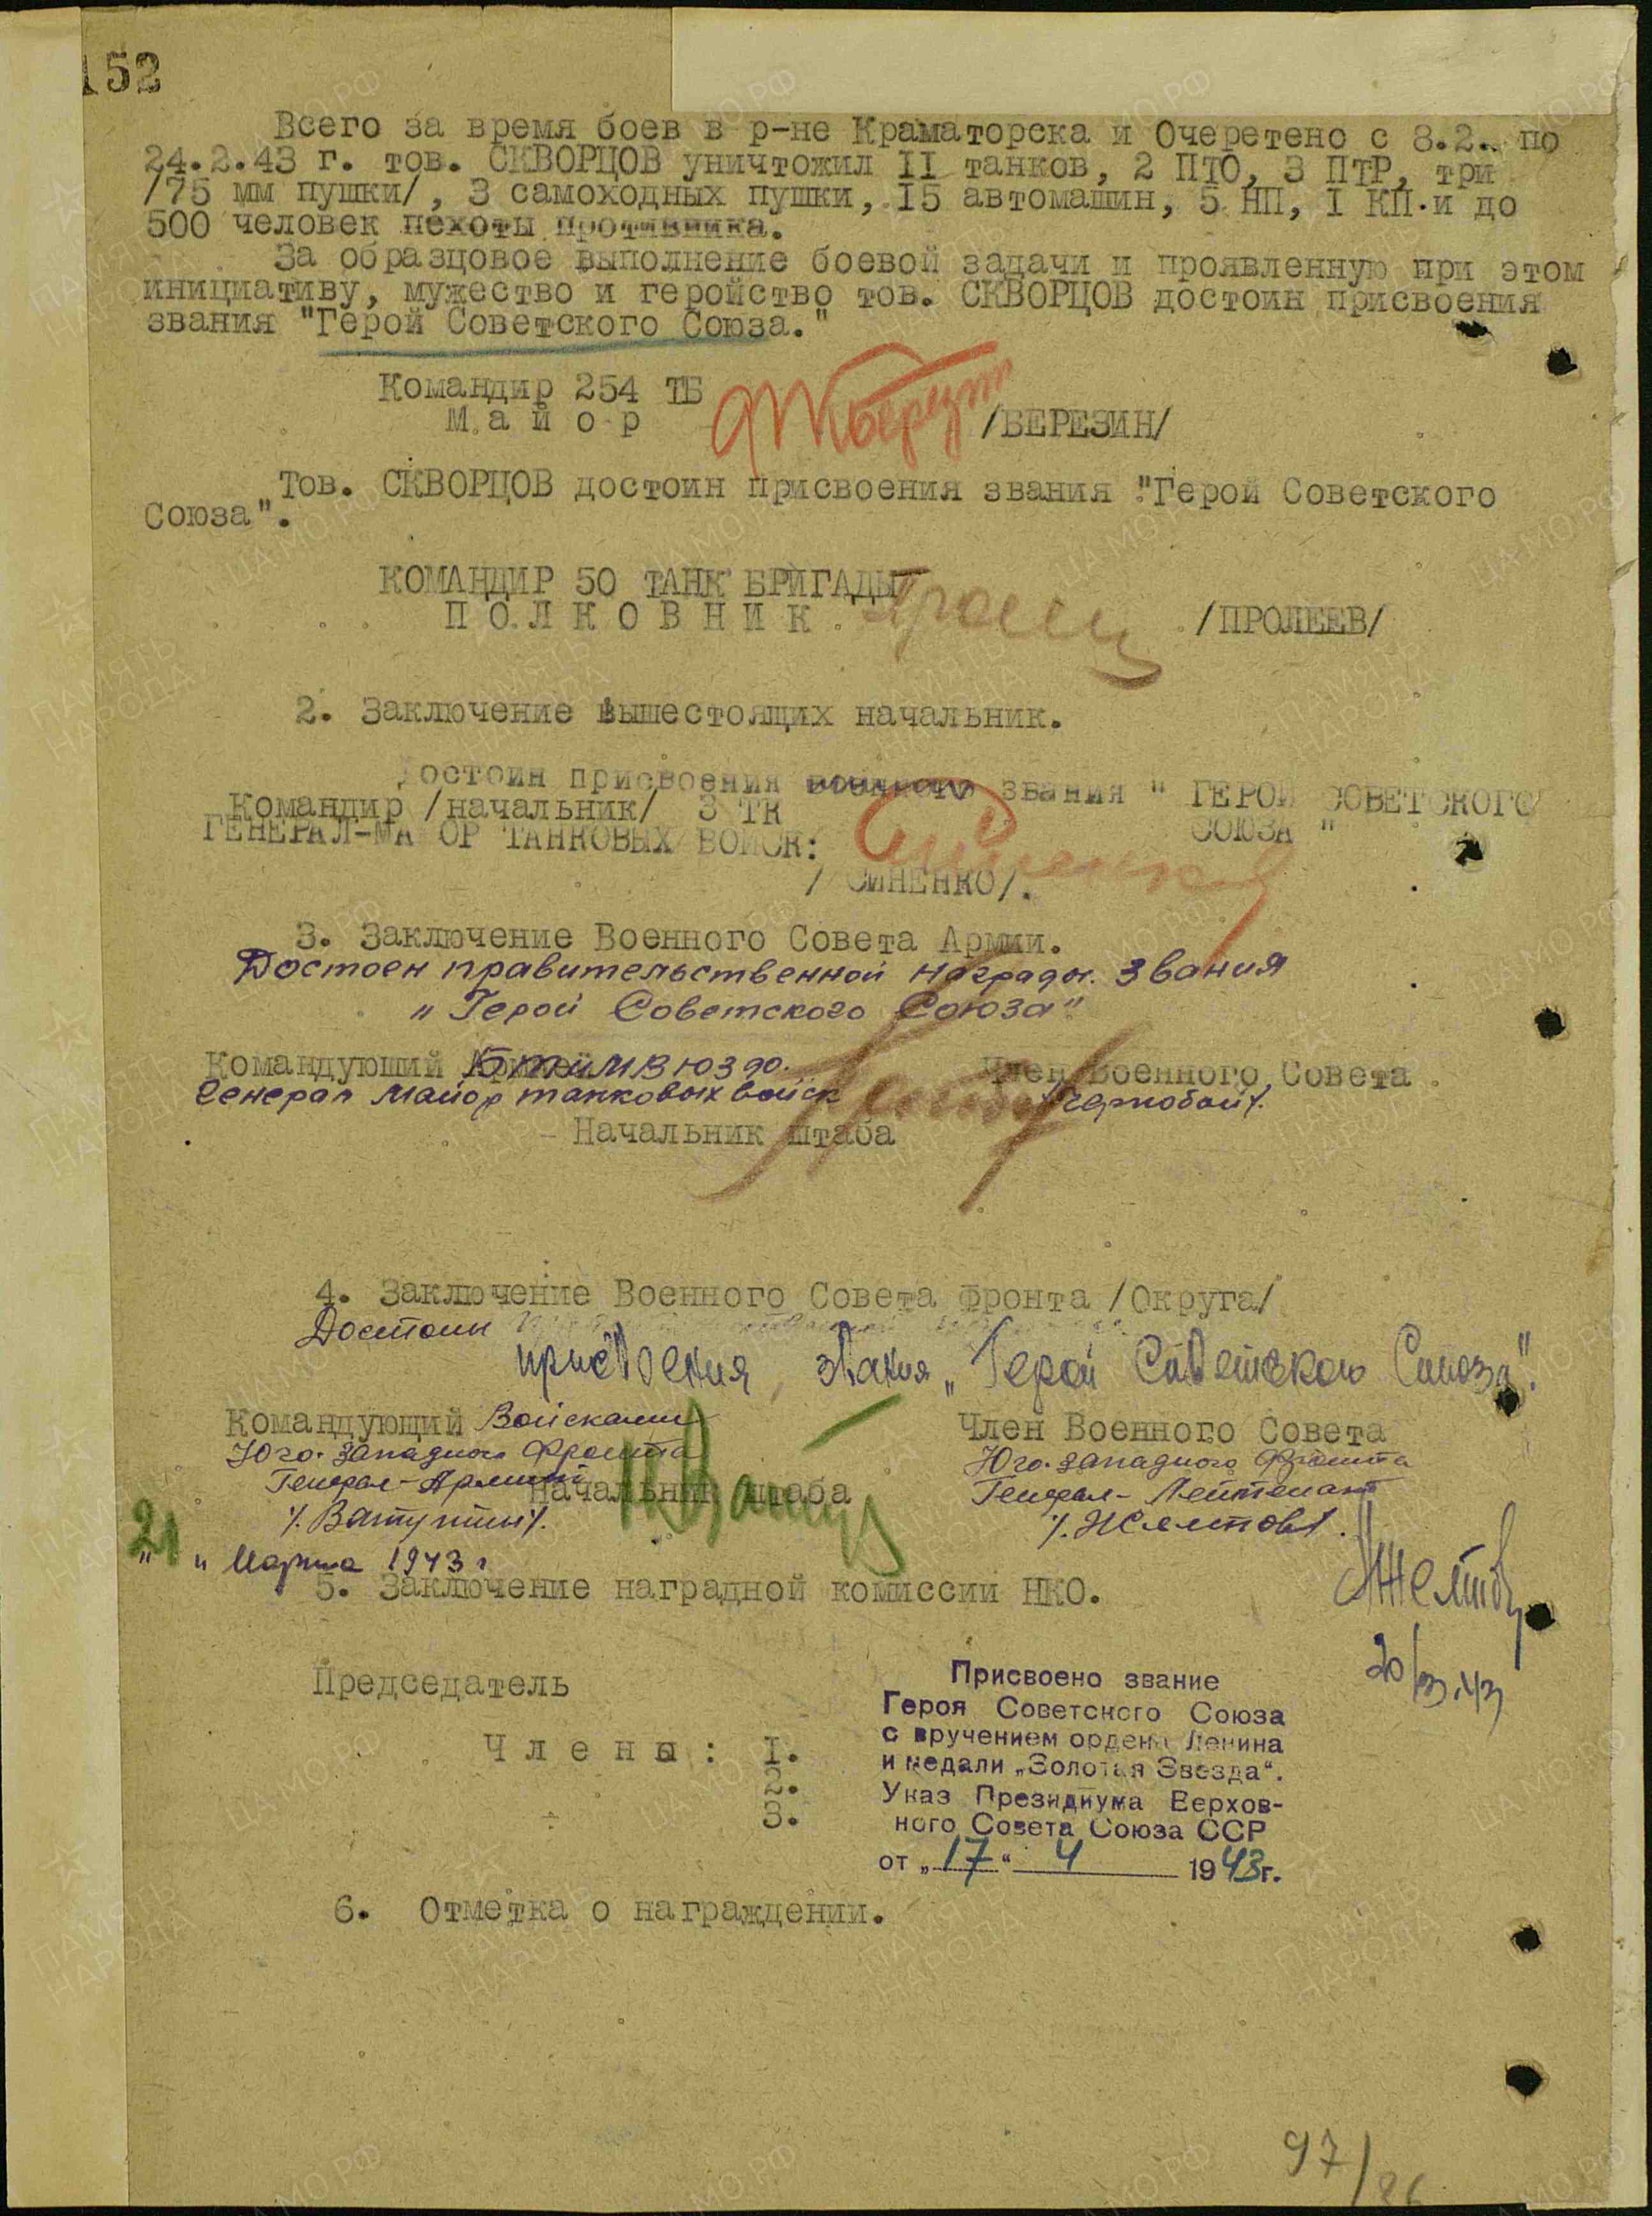 152
Всего за время боев в р-не Краматорска и Очеретено с 8.2. по
24.2.43 г. тов. СКВОРЦОВ уничтожил II танков, 2 ПТО, 3 ПТР, три
/75 мм пушки/, 3 самоходных пушки, 15 автомашин, 5 НП, I КП.и до
500 человек пехоты противника.
За образцовое выполнение боевой задачи и проявленную при этом
инициативу, мужество и геройство тов. СКВОРЦОВ достоин присвоения
звания "Герой Советского Союза."
Командир 254 ТБ
М а й о р /БЕРЕЗИН/
Тов. СКВОРЦОВ достоин присвоения звания "Герой Советского
Союза".
КОМАНДИР 50 ТАНК БРИГАДЫ
П О Л К О В Н И К /ПРОЛЕЕВ/
2. Заключение вышестоящих начальник.
достоин присвоения звания " ГЕРОЙ СОВЕТСКОГО
Командир /начальник/ 3 ТК
СОЮЗА "
ГЕНЕРАЛ-МА ОР ТАНКОВЫХ ВОЙСК:
/ СИНЕНКО/.
3. Заключение Военного Совета Армии.
Достоен правительственной награды. звания
"Герой Советского Союза"
Командующий БТ и МВ ЮЗФ. Член Военного Совета
Генерал майор танковых войск
Начальник штаба
4. Заключение Военного Совета фронта /Округа/
Достоин
присвоения звания "Герой Советского Союза".
Командующий Войсками Член Военного Совета
Юго-западного Фронта Юго-западного Фронта
Генерал-Армии Генерал-Лейтенант
Начальник штаба
/.Ватутин/. /.Желтов/.
"21" Марта 1943 г
Желтов
5. Заключение наградной комиссии НКО.
20/III.43
Председатель
Присвоено звание
Героя Советского Союза
с вручением ордена Ленина
и медали „Золотая Звезда“.
Указ Президиума Верхов-
ного Совета Союза ССР
от „17“ 4 1943г.
Ч л е н ы : I.
2.
3.
6. Отметка о награждении.
97/86